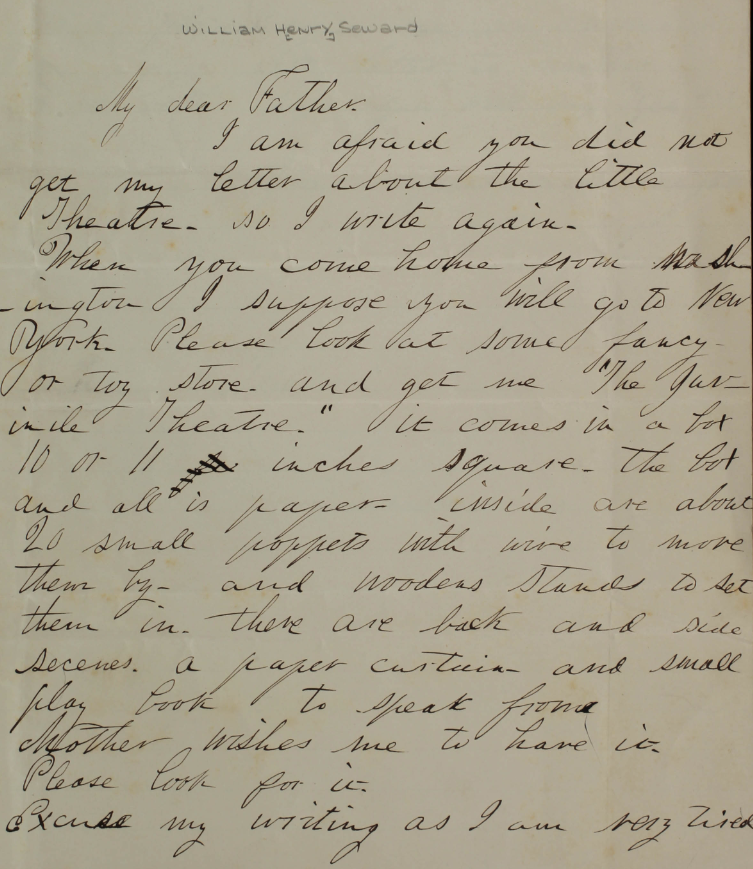 William Henry Seward
My dear Father.
I am afraid you did not
get my letter about the little
Theatre- so I write again-
When you come home from Wash
-ington I suppose you will go to New
York- Please look at some fancy-
or toy store- and get me "The Juv-
inile Theatre." it comes in a box
10 or 11 inches square- the box
and all is paper- inside are about
20 small poppets with wire to move
them by- and woodens stands to set
them in- there are back and side
secenes. a paper curtain- and small
play book to speak from
Mother wishes me to have it-
Please look for it-
Excuse my writing as I am very tired